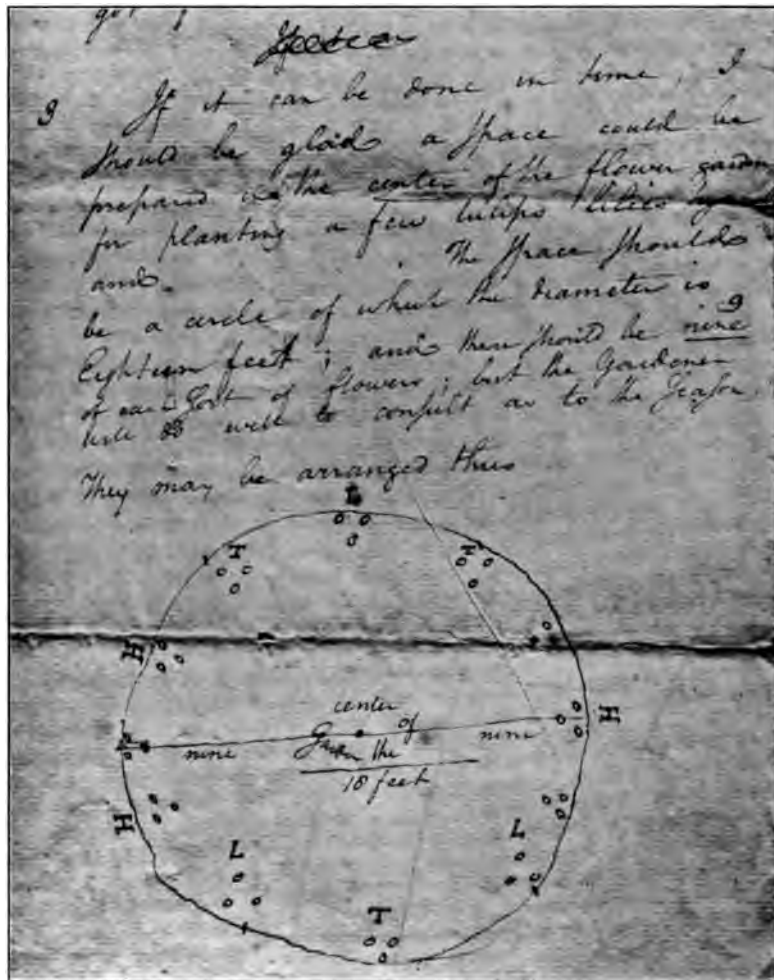 9 If it can be done in time, I
should be glad a space could be
prepared in the center of the flower garden
for planting a few tulips lilies
and. The space should
be a circle of which the diameter is
Eighteen feet; and there should be nine 9
of each sort of flowers; but the Gardener
will do well to consult as to the season.
They may be arranged thus
L
T T
H
center
of
H
nine nine
the
18 feet
H
L L
T